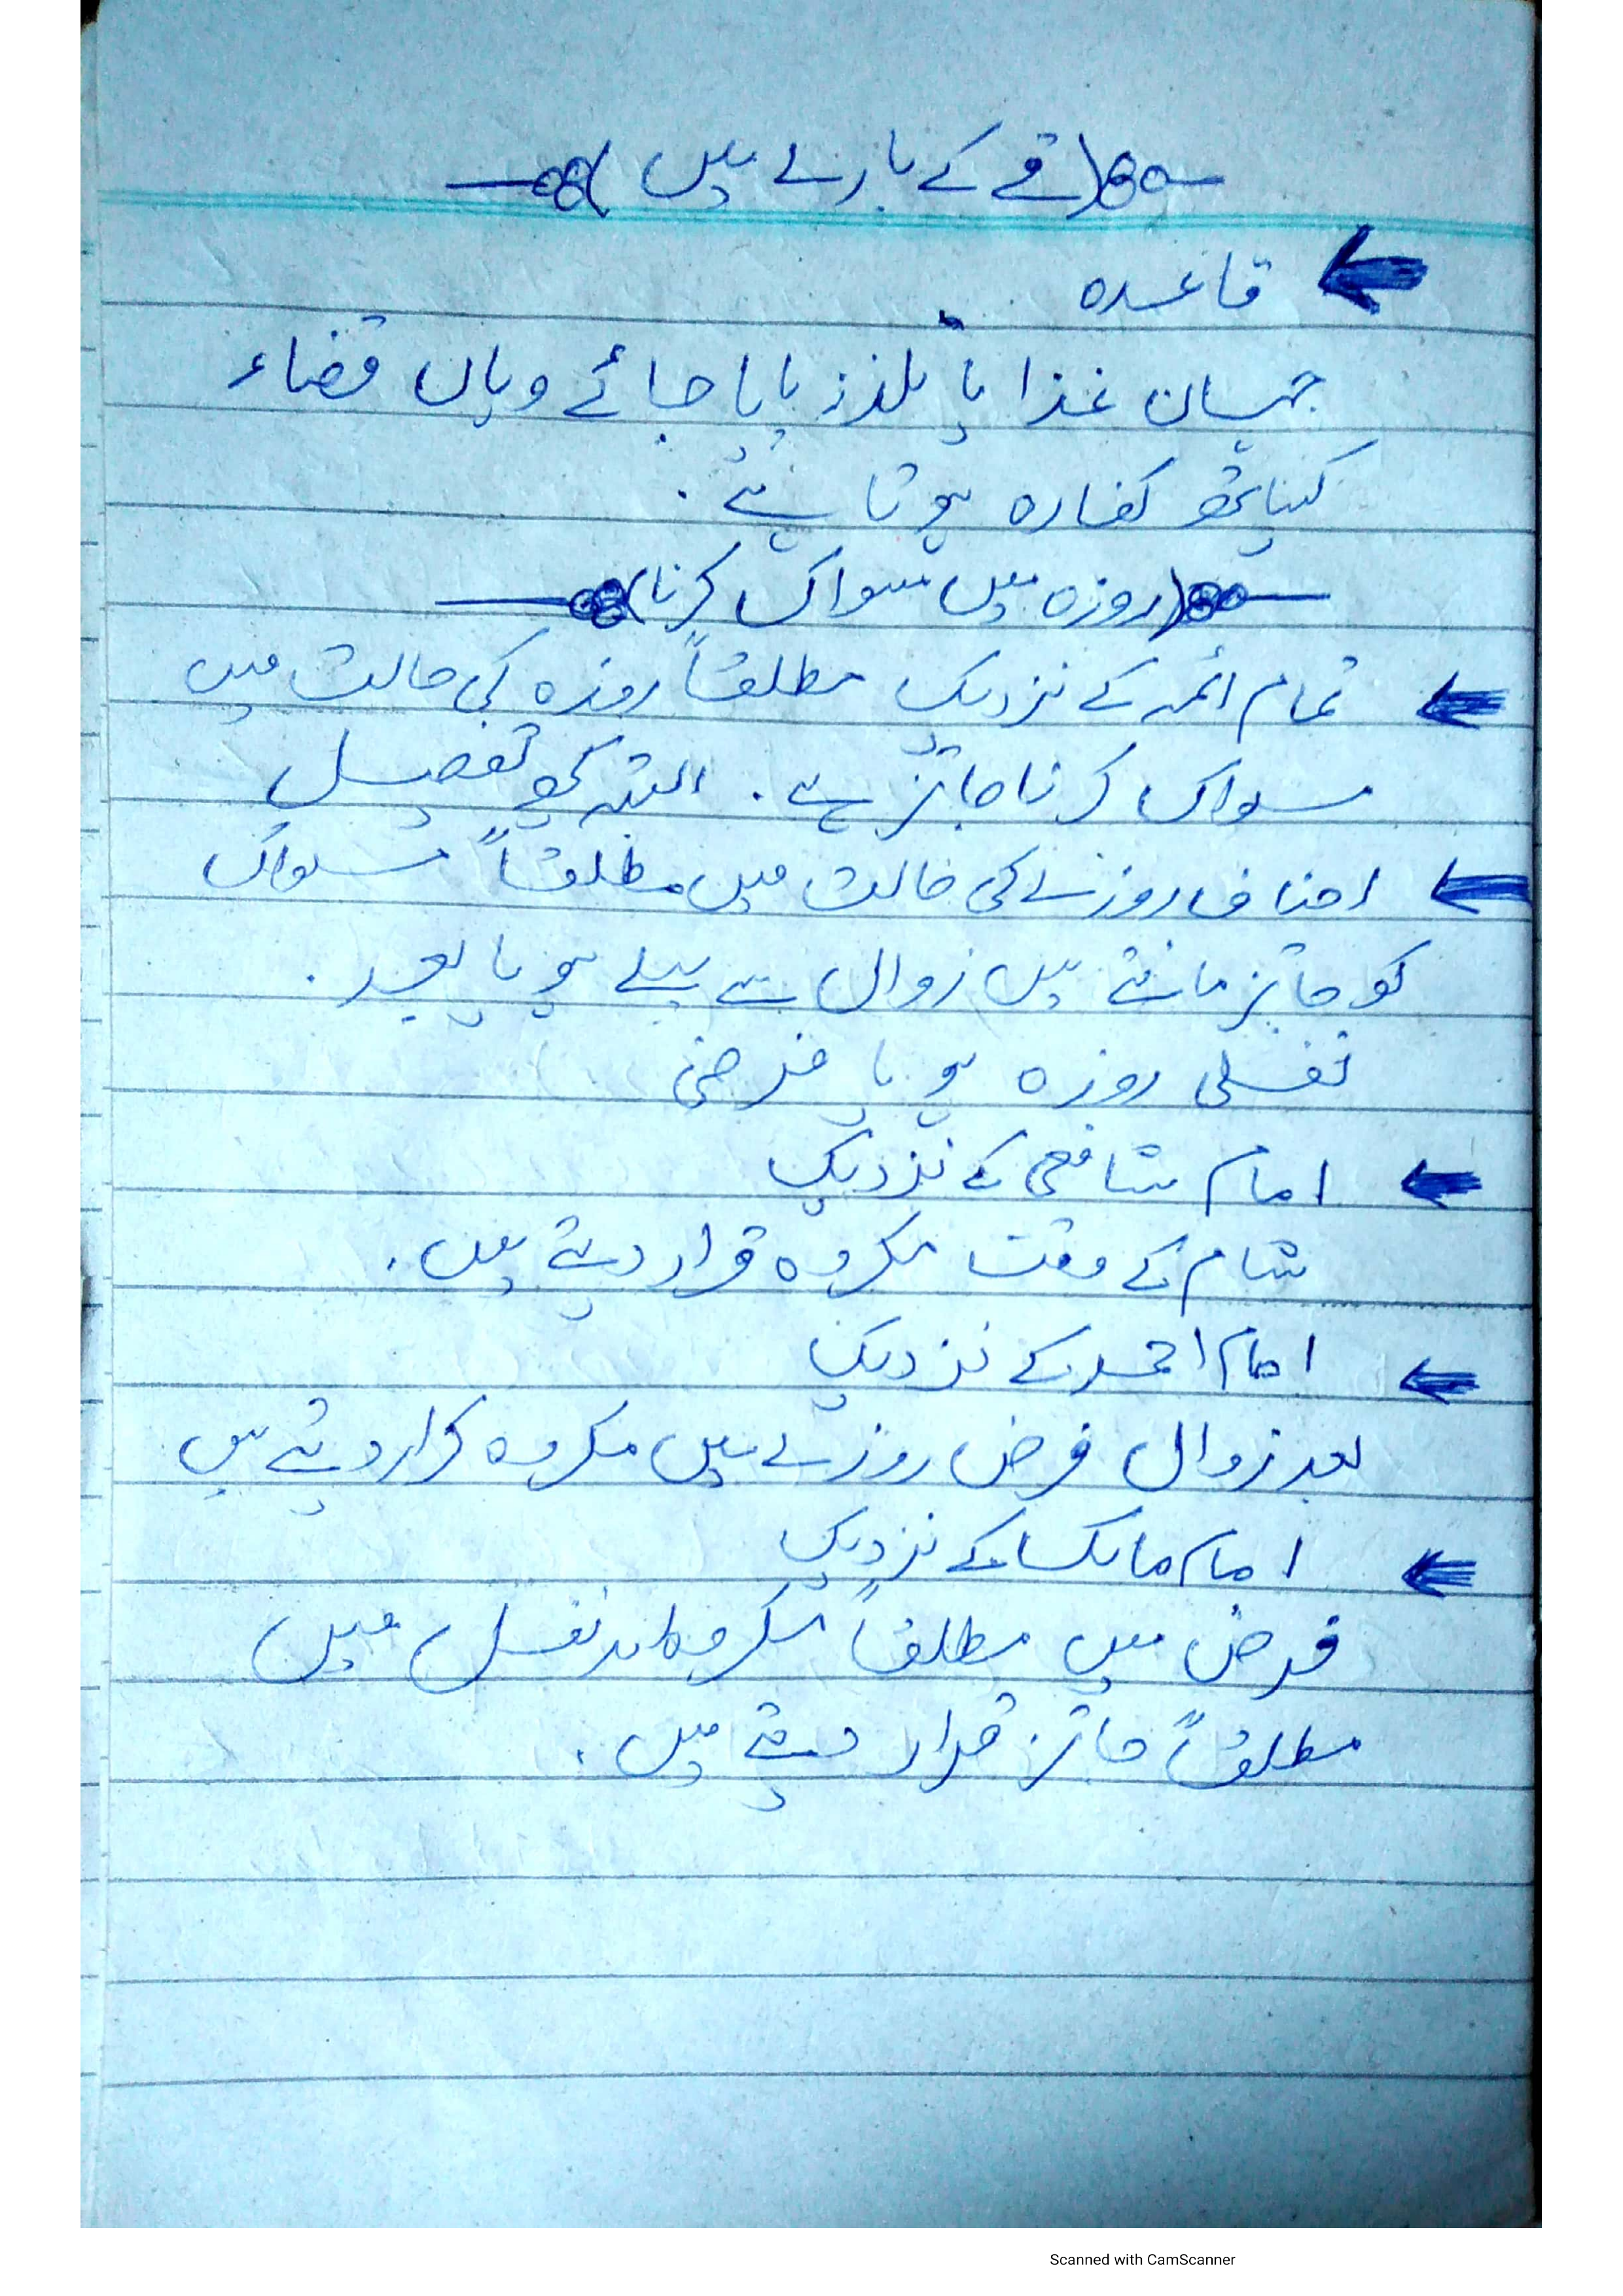 (قے کے بارے میں)
قاعدہ
جہاں غذا یا تلذذ پایا جائے وہاں قضاء
کیساتھ کفارہ ہوتا ہے۔
(روزہ میں مسواک کرنا)
تمام ائمہ کے نزدیک مطلقاً روزہ کی حالت میں
مسواک کرنا جائز ہے۔ البتہ کچھ تفصیل
احناف روزے کی حالت میں مطلقاً مسواک
کو جائز مانتے ہیں زوال سے پہلے ہو یا بعد۔
نفلی روزہ ہو یا فرضی
امام شافعی کے نزدیک
شام کے وقت مکروہ قرار دیتے ہیں۔
امام احمد کے نزدیک
بعد زوال فرض روزے میں مکروہ کرار دیتے ہیں
امام مالک کے نزدیک
فرض میں مطلقاً مکروہ اور نفل میں
مطلقاً جائز قرار دیتے ہیں۔
Scanned with CamScanner